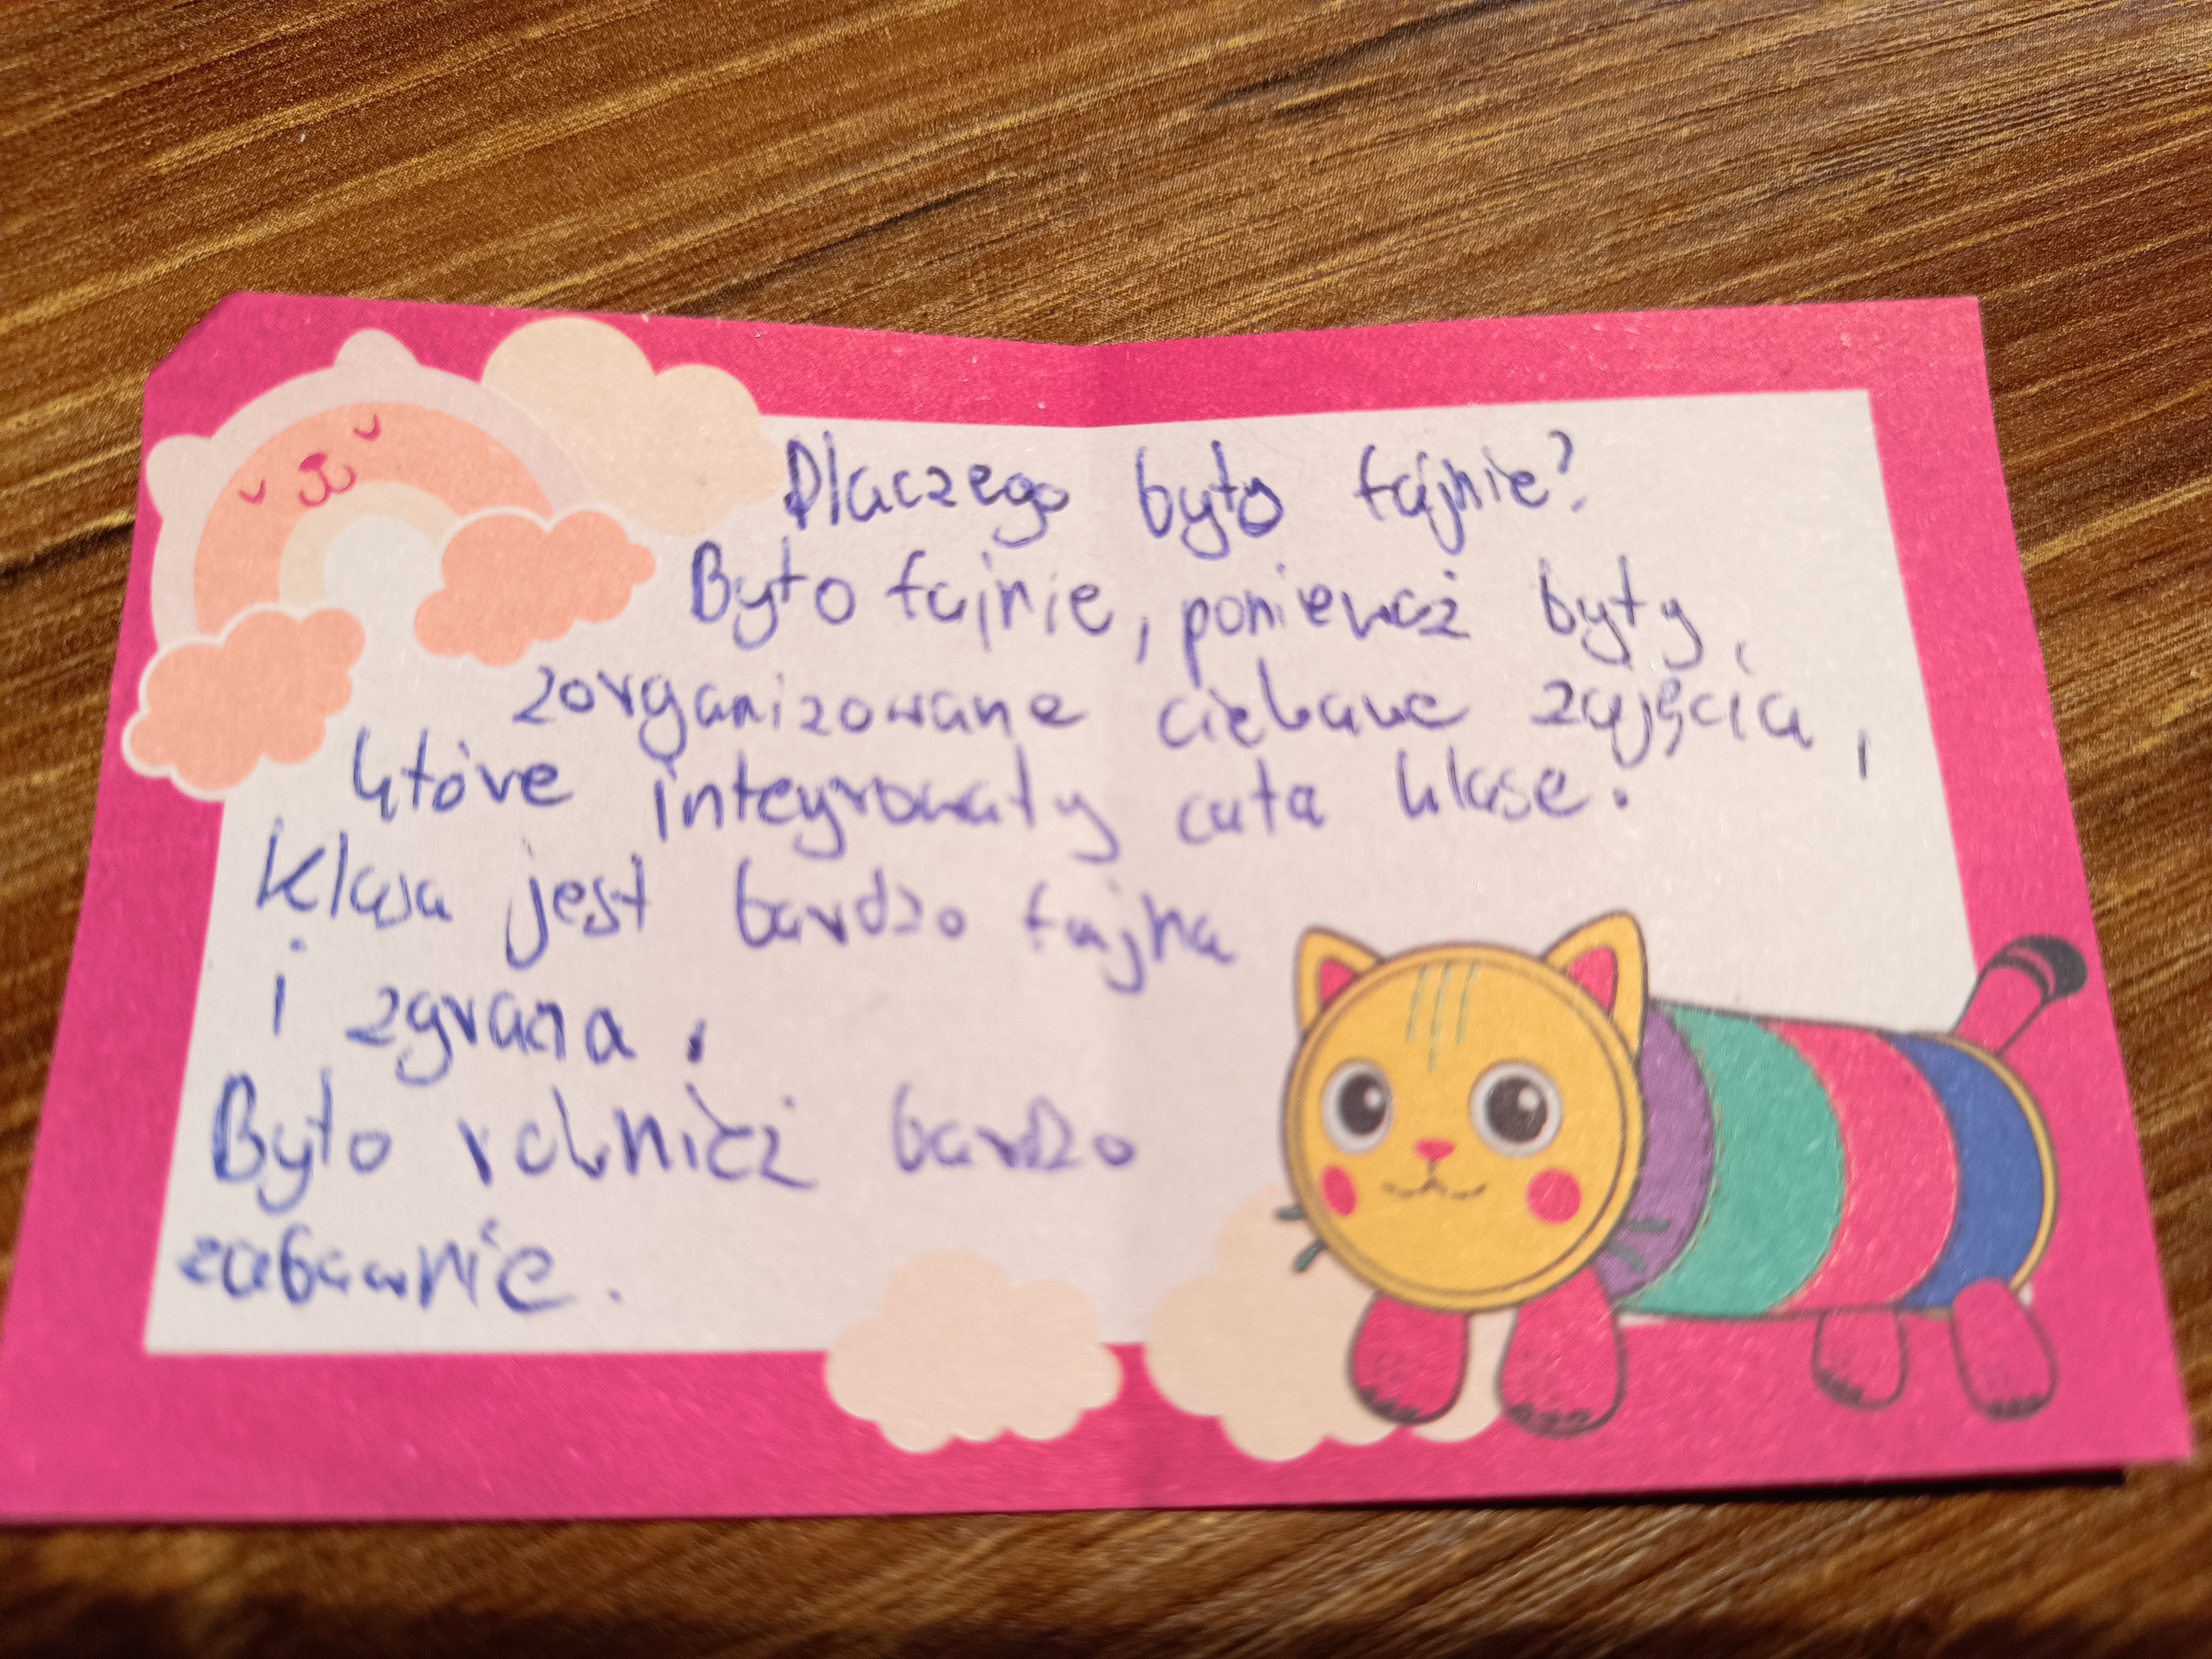 Dlaczego było fajnie?
Było fajnie, ponieważ były
zorganizowane ciekawe zajęcia,
które integrowały cała klase.
Klasa jest bardzo fajna
i zgrana.
Było rownież bardzo
zabawnie.